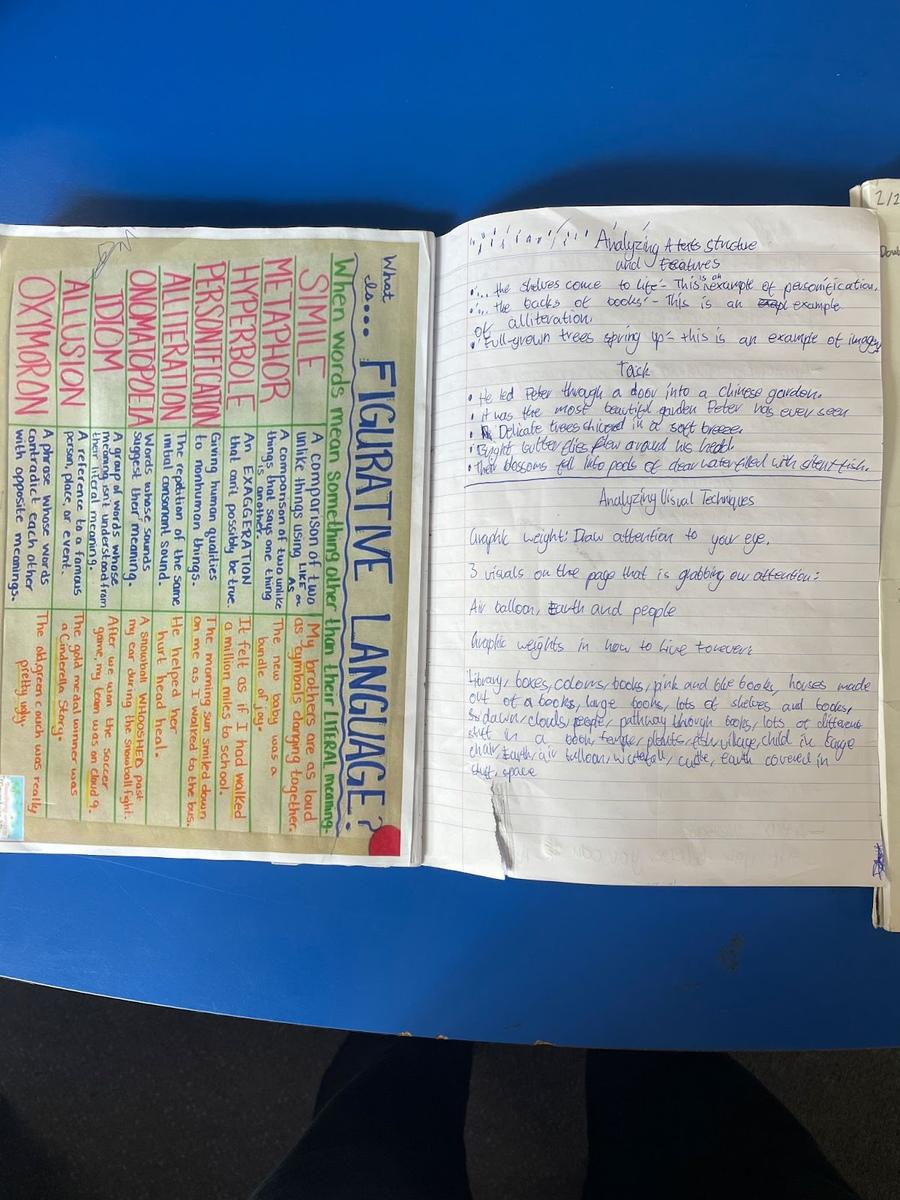 What
Is... FIGURATIVE LANGUAGE?
When words mean something other than their LITERAL meaning.
SIMILE
A comparison of two
unlike things using LIKE or
AS
My brothers are as loud
as cymbals clanging together.
METAPHOR
A comparison of two unlike
things that says one thing
is another.
The new baby was a
bundle of joy.
HYPERBOLE
An EXAGGERATION
that can't possibly be true.
It felt as if I had walked
a million miles to school.
PERSONIFICATION
Giving human qualities
to nonhuman things.
The morning sun smiled down
on me as I walked to the bus.
ALLITERATION
The repetition of the same
initial consonant sound.
He helped her
hurt head heal.
ONOMATOPOEIA
Words whose sounds
suggest their meaning.
A snowball WHOOSHED past
my ear during the snowball fight.
IDIOM
A group of words whose
meaning isn't understood from
their literal meaning.
After we won the soccer
game, my team was on cloud 9.
ALLUSION
A reference to a famous
person, place, or event.
The gold medal winner was
a "Cinderella Story."
OXYMORON
A phrase whose words
contradict each other
with opposite meanings.
The old, green couch was really
pretty ugly.
Analyzing A texts structure
and Features
• '... the shelves come to life' - This is an example of personification.
• '... the backs of books' - This is an example
of alliteration.
• 'Full-grown trees spring up' - this is an example of imagery
Task
• He led Peter through a door into a Chinese garden.
• it was the most beautiful garden Peter has ever seen
• Delicate trees shivered in a soft breeze.
• Bright butterflies flew around his head.
• Their blossoms fell into pools of clear water filled with silent fish.
Analyzing Visual Techniques
Graphic weight: Draw attention to your eye.
3 visuals on the page that is grabbing our attention:
Air balloon, Earth and people
Graphic weights in how to live forever:
Library, boxes, colours, books, pink and blue books, houses made
out of a books, large books, lots of shelves and books,
dawn/clouds, people, pathway through books, lots of different
stuff in a book, temple, plants, fish, village, child in
chair, Earth, air balloon, waterfall, earth covered in
stuff, space
2/2